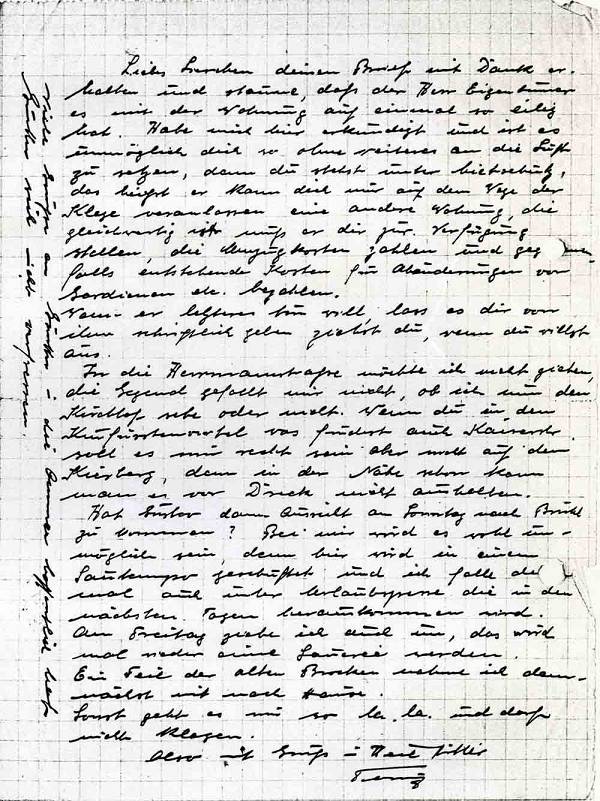 Liebes Lieschen deinen Brief mit Dank er-
halten und staune, daß der Herr Eigentümer
es mit der Wohnung auf einmal so eilig
hat. Habe mich hier erkundigt und ist es
unmöglich dich so ohne weiteres an die Luft
zu setzen, denn du stehst unter Mietschutz,
das heißt er kann dich nur auf dem Wege der
Klage veranlassen eine andere Wohnung, die
gleichwertig ist muß er dir zur Verfügung
stellen, die Umzugkosten zahlen und geg
falls entstehende Kosten für Abänderungen von
Gardienen etc. bezahlen.
Wenn er letzteres tun will, lass es dir von
ihm schriftlich geben ziehst du, wenn du willst
aus.
In die Herrmannstraße möchte ich nicht ziehen,
die Gegend gefällt mir nicht, ob ich nun den
Kirchhof sehe oder nicht. Wenn du in den
Kurfürstenviertel was findest auch Kaiserstr.
soll es mir recht sein aber nicht auf den
Kierberg, denn in der Nähe schon kann
man es vor Dreck nicht aushalten.
Hat Gustav dann Aussicht an Sonntag nach Brühl
zu kommen? Bei mir wird es wohl un-
möglich sein, denn hier wird in einem
Sautempo geschuftet und ich falle de
mal auch unter Urlaubssperre die in den
nächsten Tagen herauskommen wird.
Am Freitag ziehe ich auch um, das wird
mal wieder eine Sauerei werden.
Ein Teil der alten Brocken nehme ich dem-
nächst mit nach Hause.
Sonst geht es mir so la. la. und darf
nicht klagen.
Also mit Gruß u Heil Hitler
viele Grüße an
die
hoffentlich hat
viel nicht vergessen.